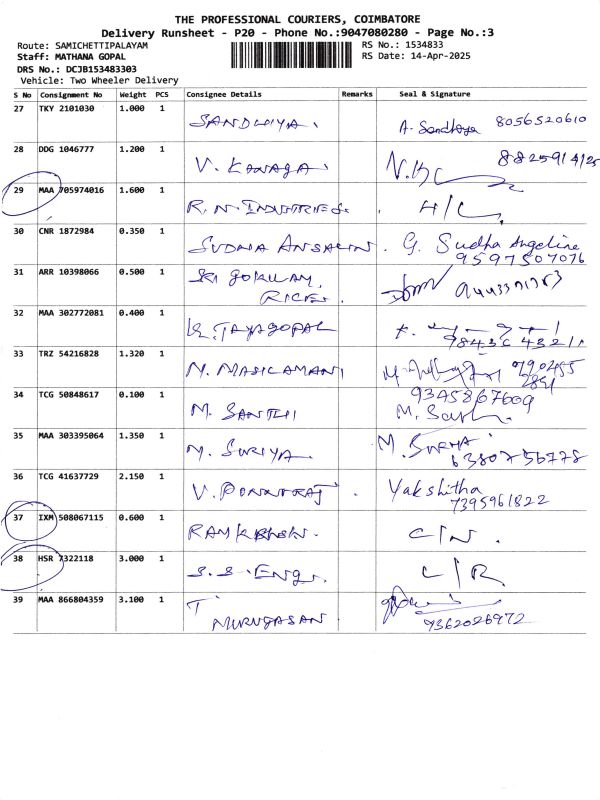 THE PROFESSIONAL COURIERS, COIMBATORE
Delivery Runsheet - P20 - Phone No.:9047080280 - Page No.:3
Route: SAMICHETTIPALAYAM RS No.: 1534833
Staff: MATHANA GOPAL RS Date: 14-Apr-2025
DRS No.: DCJB153483303
Vehicle: Two Wheeler Delivery
S No Consignment No Weight PCS Consignee Details Remarks Seal & Signature
27 TKY 2101030 1.000 1 SANDHIYA. A. Sandhya 8056520610
28 DDG 1046777 1.200 1 V. KANAGA. 8825914125
29 MAA 705974016 1.600 1 R.N. INDUSTRIES. H/C.
30 CNR 1872984 0.350 1 SUDHA ANSALIN. G. Sudha Angeline
9597507076
31 ARR 10398066 0.500 1 SRI GOKULAM
RICE.
32 MAA 302772081 0.400 1 K. JAYAGOPAL
98436 43211
33 TRZ 54216828 1.320 1 M. MASILAMANI 790455
2891
34 TCG 50848617 0.100 1 M. SANTHI 9345867609
M.
35 MAA 303395064 1.350 1 M. SURIYA. M. SURYA
6380756778
36 TCG 41637729 2.150 1 V. PONNURAJ. Yakshitha
7395961822
37 IXM 508067115 0.600 1 C/N.
38 HSR 7322118 3.000 1 S.S. Eng. C/R.
39 MAA 866804359 3.100 1 T
MURUGASAN 9362026972